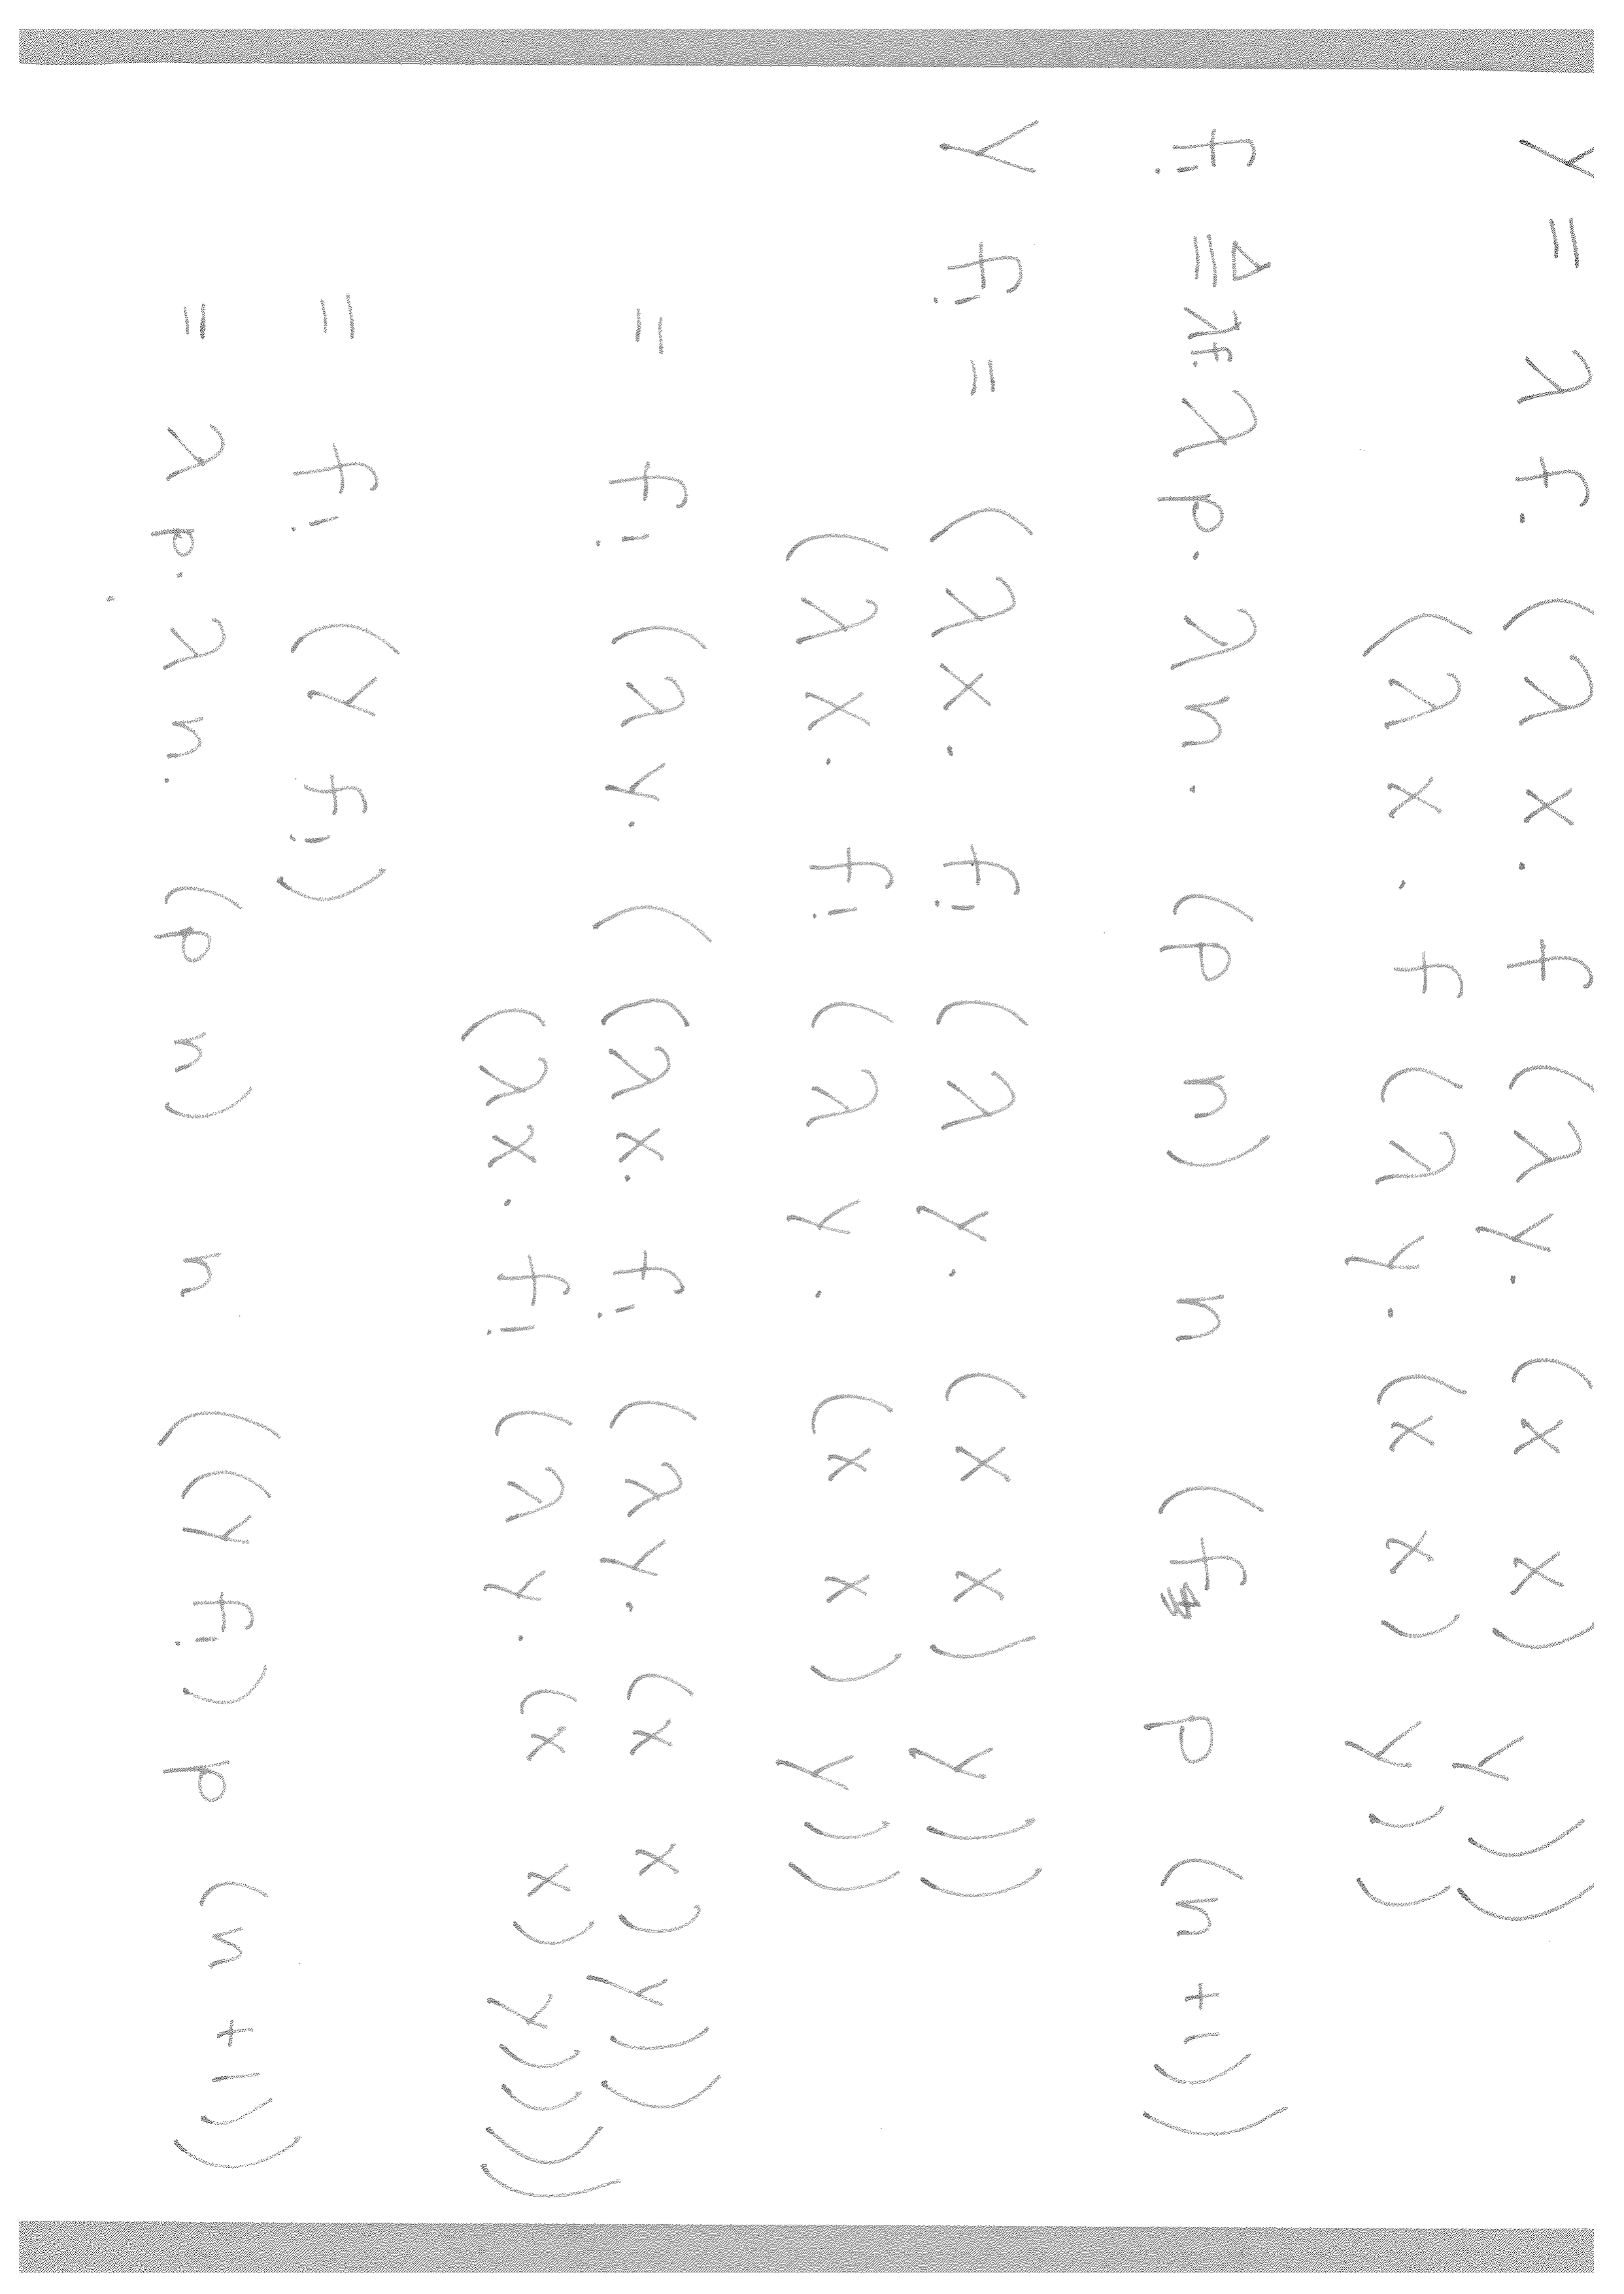 Y = λ f. (λ x. f (λ y. (x x) y))
(λ x. f (λ y. (x x) y))
fi ≜ λf. λ p. λ n. (p n) n (f p (n + 1))
Y fi = (λ x. fi (λ y. (x x) y))
(λ x. fi (λ y. (x x) y))
= fi (λ y. ( (λ x. fi (λ y. (x x) y))
(λ x. fi (λ y. (x x) y)) ))
= fi (Y fi)
= λ p. λ n. (p n) n ((Y fi) p (n + 1))